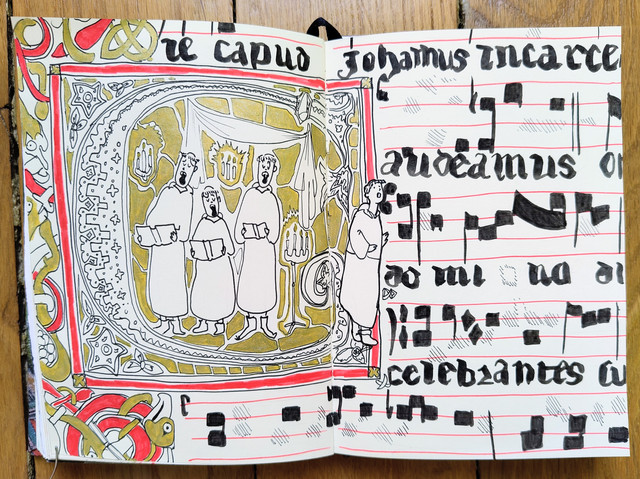 re capud Johannis incarce
Gaudeamus o
do mi no di
celebrantes su